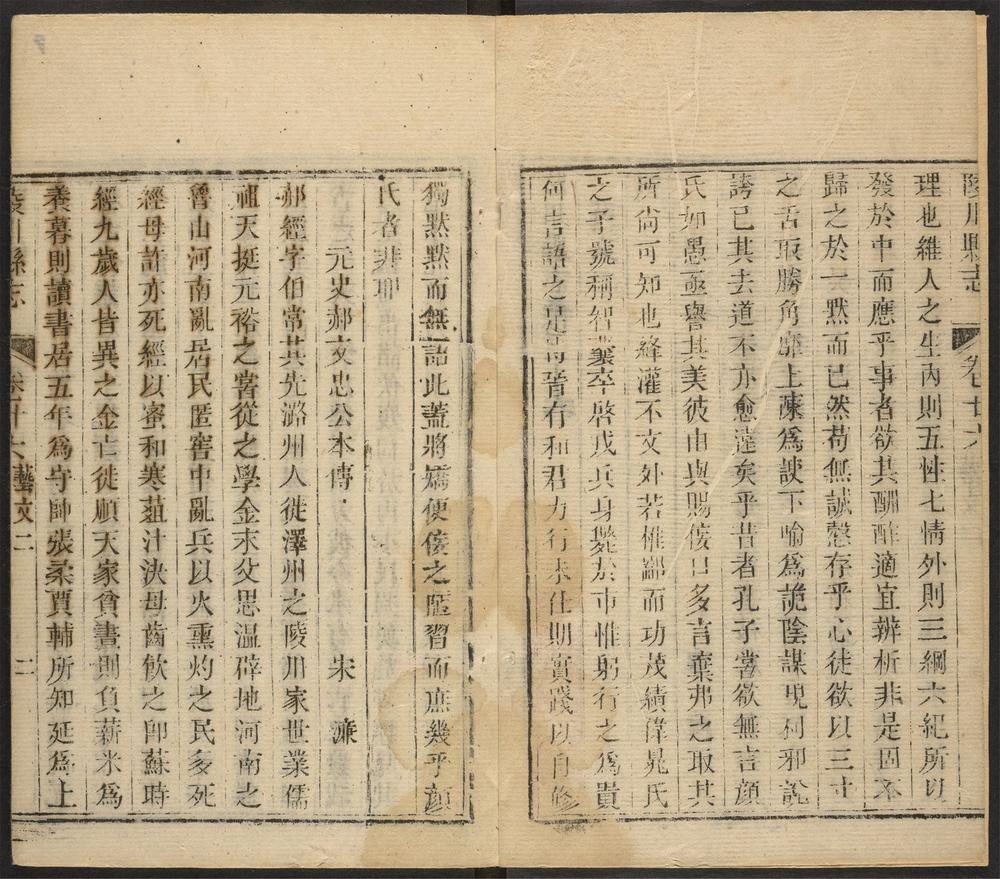 陵川縣志 卷廿六
理也維人之生內則五性七情外則三綱六紀所以
發於中而應乎事者欲其酬酢適宜辨析非是固不
歸之於一默而已然苟無誠慤存乎心徒欲以三寸
之舌取勝角靡上陳為諛下喻為詭陰謀現列邪說
誇已其去道不亦愈遠矣乎昔者孔子嘗欲無言顔
氏如愚亟譽其美彼由與賜佞口多言棄弗之取其
所尚可知也絳灌不文外若椎鄙而功茂績偉晁氏
之子號稱智囊卒啓戎兵身斃於市惟躬行之為貴
何言語之足 晉有和君力行未仕期實踐以自修
獨默默而無語此蓋將矯便佞之陋習而庶幾乎顔
氏者非耶
元史郝文忠公本傳 宋濂
郝經字伯常其先潞州人徙澤州之陵川家世業儒
祖天挺元裕之嘗從之學金末父思温辟地河南之
魯山河南亂居民匿窖中亂兵以火熏灼之民多死
經母許亦死經以蜜和寒葅汁決母齒飲之卽蘇時
經九歲人皆異之金亡徙順天家貧晝則負薪米為
養暮則讀書居五年為守帥張柔賈輔所知延為上
陵川縣志 卷廿六 藝文二 二